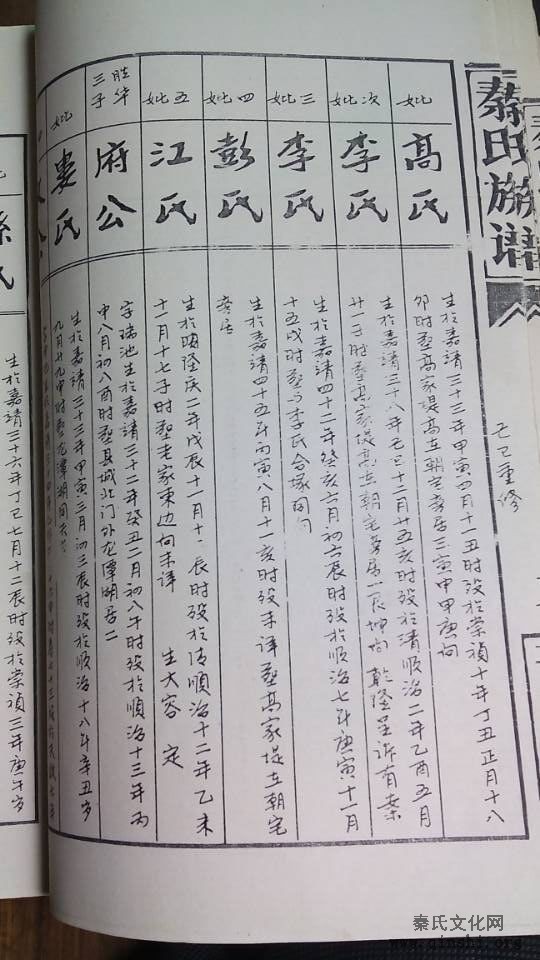 秦氏族谱
己巳重修
妣
高氏
生於嘉靖三十三年甲寅四月十一丑时殁於崇祯十年丁丑正月十八
卯时塟髙家堤髙左朝宅旁居三寅甲甲庚向
次妣
李氏
生於嘉靖三十八年己巳十二月廿五亥时殁於清順治二年乙酉五月
廿一子时塟髙家堤髙左朝宅旁居一艮坤向 乾隆呈许有案
三妣
李氏
生於嘉靖四十二年癸亥六月初六辰时殁於順治七年庚寅十一月
十五戍时塟与李氏合塚同向
四妣
彭氏
生於嘉靖四十五年丙寅八月十一亥时殁未详塟髙家堤左朝宅
旁居
五妣
江氏
生於隆庆二年戊辰十一月十 辰时殁於清順治十二年乙未
十一月十七子时塟老家東边向未详 生大容 定
胜华
三子
府公
字瑞池生於嘉靖三十二年癸丑二月初八午时殁於順治十三年丙
申八月初八酉时塟县城北门外龙潭湖居二
妣
娄氏
生於嘉靖三十三年甲寅三月初三辰时殁於順治十八年辛丑岁
九月廿九申时塟龙潭湖同夫
孫氏
生於嘉靖三十六年丁巳七月十二辰时殁於崇禎三年庚午岁
秦氏文化网